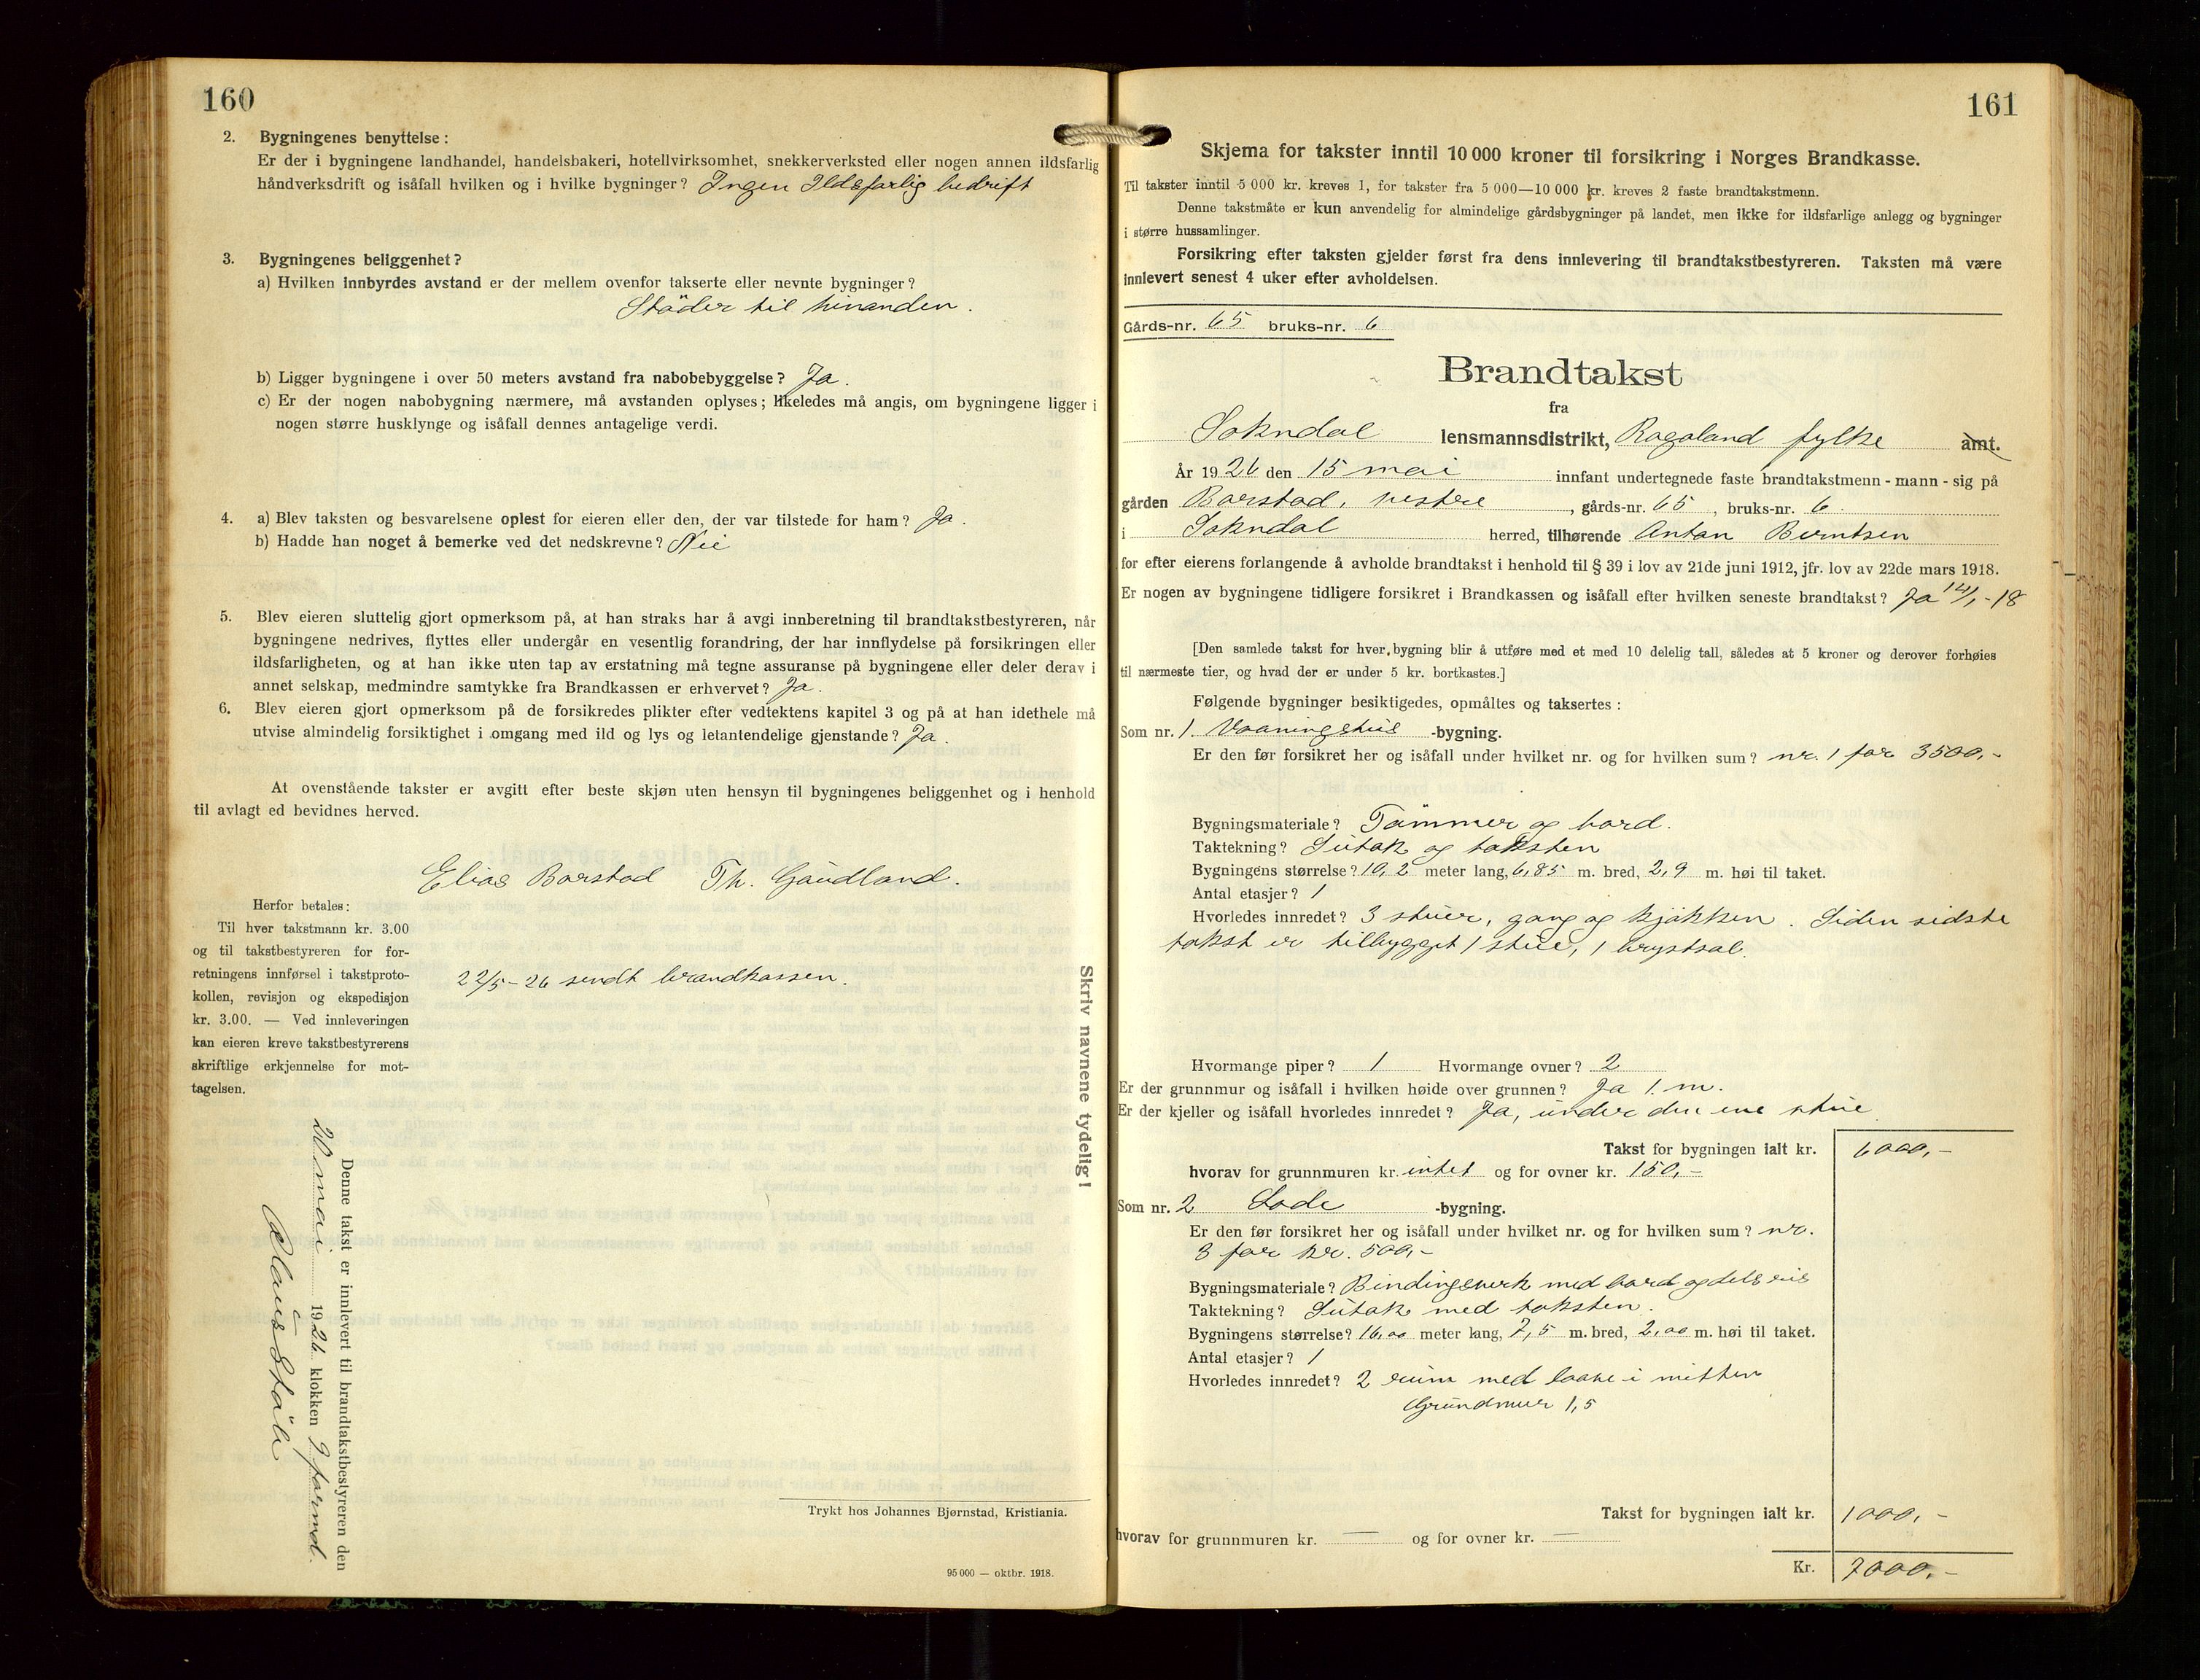 160
2. Bygningenes benyttelse :
Er der i bygningene landhandel, handelsbakeri, hotellvirksomhet, snekkerverksted eller nogen annen ildsfarlig
håndverksdrift og isåfall hvilken og i hvilke bygninger? Ingen Ildsfarlig bedrift
3. Bygningenes beliggenhet?
a) Hvilken innbyrdes avstand er der mellem ovenfor takserte eller nevnte bygninger?
Støder til hinanden.
b) Ligger bygningene i over 50 meters avstand fra nabobebyggelse? Ja.
c) Er der nogen nabobygning nærmere, må avstanden oplyses; likeledes må angis, om bygningene ligger i
nogen større husklynge og isåfall dennes antagelige verdi.
4. a) Blev taksten og besvarelsene oplest for eieren eller den, der var tilstede for ham? Ja.
b) Hadde han noget å bemerke ved det nedskrevne? Nei
5. Blev eieren sluttelig gjort opmerksom på, at han straks har å avgi innberetning til brandtakstbestyreren, når
bygningene nedrives, flyttes eller undergår en vesentlig forandring, der har innflydelse på forsikringen eller
ildsfarligheten, og at han ikke uten tap av erstatning må tegne assuranse på bygningene eller deler derav i
annet selskap, medmindre samtykke fra Brandkassen er erhvervet? Ja.
6. Blev eieren gjort opmerksom på de forsikredes plikter efter vedtektens kapitel 3 og på at han idethele må
utvise almindelig forsiktighet i omgang med ild og lys og letantendelige gjenstande? Ja.
At ovenstående takster er avgitt efter beste skjøn uten hensyn til bygningenes beliggenhet og i henhold
til avlagt ed bevidnes herved.
Elias Barstad Th. Gaudland.
Herfor betales:
Til hver takstmann kr. 3.00
og til takstbestyreren for for-
retningens innførsel i takstproto-
kollen, revisjon og ekspedisjon
kr. 3.00. — Ved innleveringen
kan eieren kreve takstbestyrerens
skriftlige erkjennelse for mot-
tagelsen.
22/5-26 sendt brandkassen.
Skriv navnene tydelig!
Denne takst er innlevert til brandtakstbestyreren den
20 mai 1926 klokken 9 formd.
Trykt hos Johannes Bjørnstad, Kristiania.
95 000 — oktbr. 1918.
161
Skjema for takster inntil 10 000 kroner til forsikring i Norges Brandkasse.
Til takster inntil 5 000 kr. kreves 1, for takster fra 5 000—10 000 kr. kreves 2 faste brandtakstmenn.
Denne takstmåte er kun anvendelig for almindelige gårdsbygninger på landet, men ikke for ildsfarlige anlegg og bygninger
i større hussamlinger.
Forsikring efter taksten gjelder først fra dens innlevering til brandtakstbestyreren. Taksten må være
innlevert senest 4 uker efter avholdelsen.
Gårds-nr. 65 bruks-nr. 6
Brandtakst
fra
Sokndal lensmannsdistrikt, Rogaland fylke amt.
År 1926 den 15 mai innfant undertegnede faste brandtakstmenn - mann - sig på
gården Barstad, vestre, gårds-nr. 65, bruks-nr. 6
i Sokndal herred, tilhørende Antan Berntsen
for efter eierens forlangende å avholde brandtakst i henhold til § 39 i lov av 21de juni 1912, jfr. lov av 22de mars 1918.
Er nogen av bygningene tidligere forsikret i Brandkassen og isåfall efter hvilken seneste brandtakst? Ja 14/1-18
[Den samlede takst for hver bygning blir å utføre med et med 10 delelig tall, således at 5 kroner og derover forhøies
til nærmeste tier, og hvad der er under 5 kr. bortkastes.]
Følgende bygninger besiktigedes, opmåltes og taksertes :
Som nr. 1 Vaaningshus -bygning.
Er den før forsikret her og isåfall under hvilket nr. og for hvilken sum? nr. 1 for 3500,-
Bygningsmateriale? Tømmer og bord.
Taktekning? Sutak og taksten
Bygningens størrelse? 10,2 meter lang, 6,85 m. bred, 2,9 m. høi til taket.
Antal etasjer? 1
Hvorledes innredet? 3 stuer, gang og kjøkken. Siden sidste
takst er tilbygget 1 stue, 1 brystsal.
Hvormange piper? 1 Hvormange ovner? 2
Er der grunnmur og isåfall i hvilken høide over grunnen? Ja 1. m.
Er der kjeller og isåfall hvorledes innredet? Ja, under den ene stue
Takst for bygningen ialt kr. 6000,-
hvorav for grunnmuren kr. intet og for ovner kr. 150,-
Som nr. 2 Løde -bygning.
Er den før forsikret her og isåfall under hvilket nr. og for hvilken sum? nr.
3 for kr. 500,-
Bygningsmateriale? Bindingsverk med bord og dels
Taktekning? Sutak med taksten.
Bygningens størrelse? 16,00 meter lang, 7,5 m. bred, 2,00 m. høi til taket.
Antal etasjer? 1
Hvorledes innredet? 2 rum med laave i mitten
Grundmur 1,5
Takst for bygningen ialt kr. 1000,-
hvorav for grunnmuren kr. — og for ovner kr. —
Kr. 7000,-